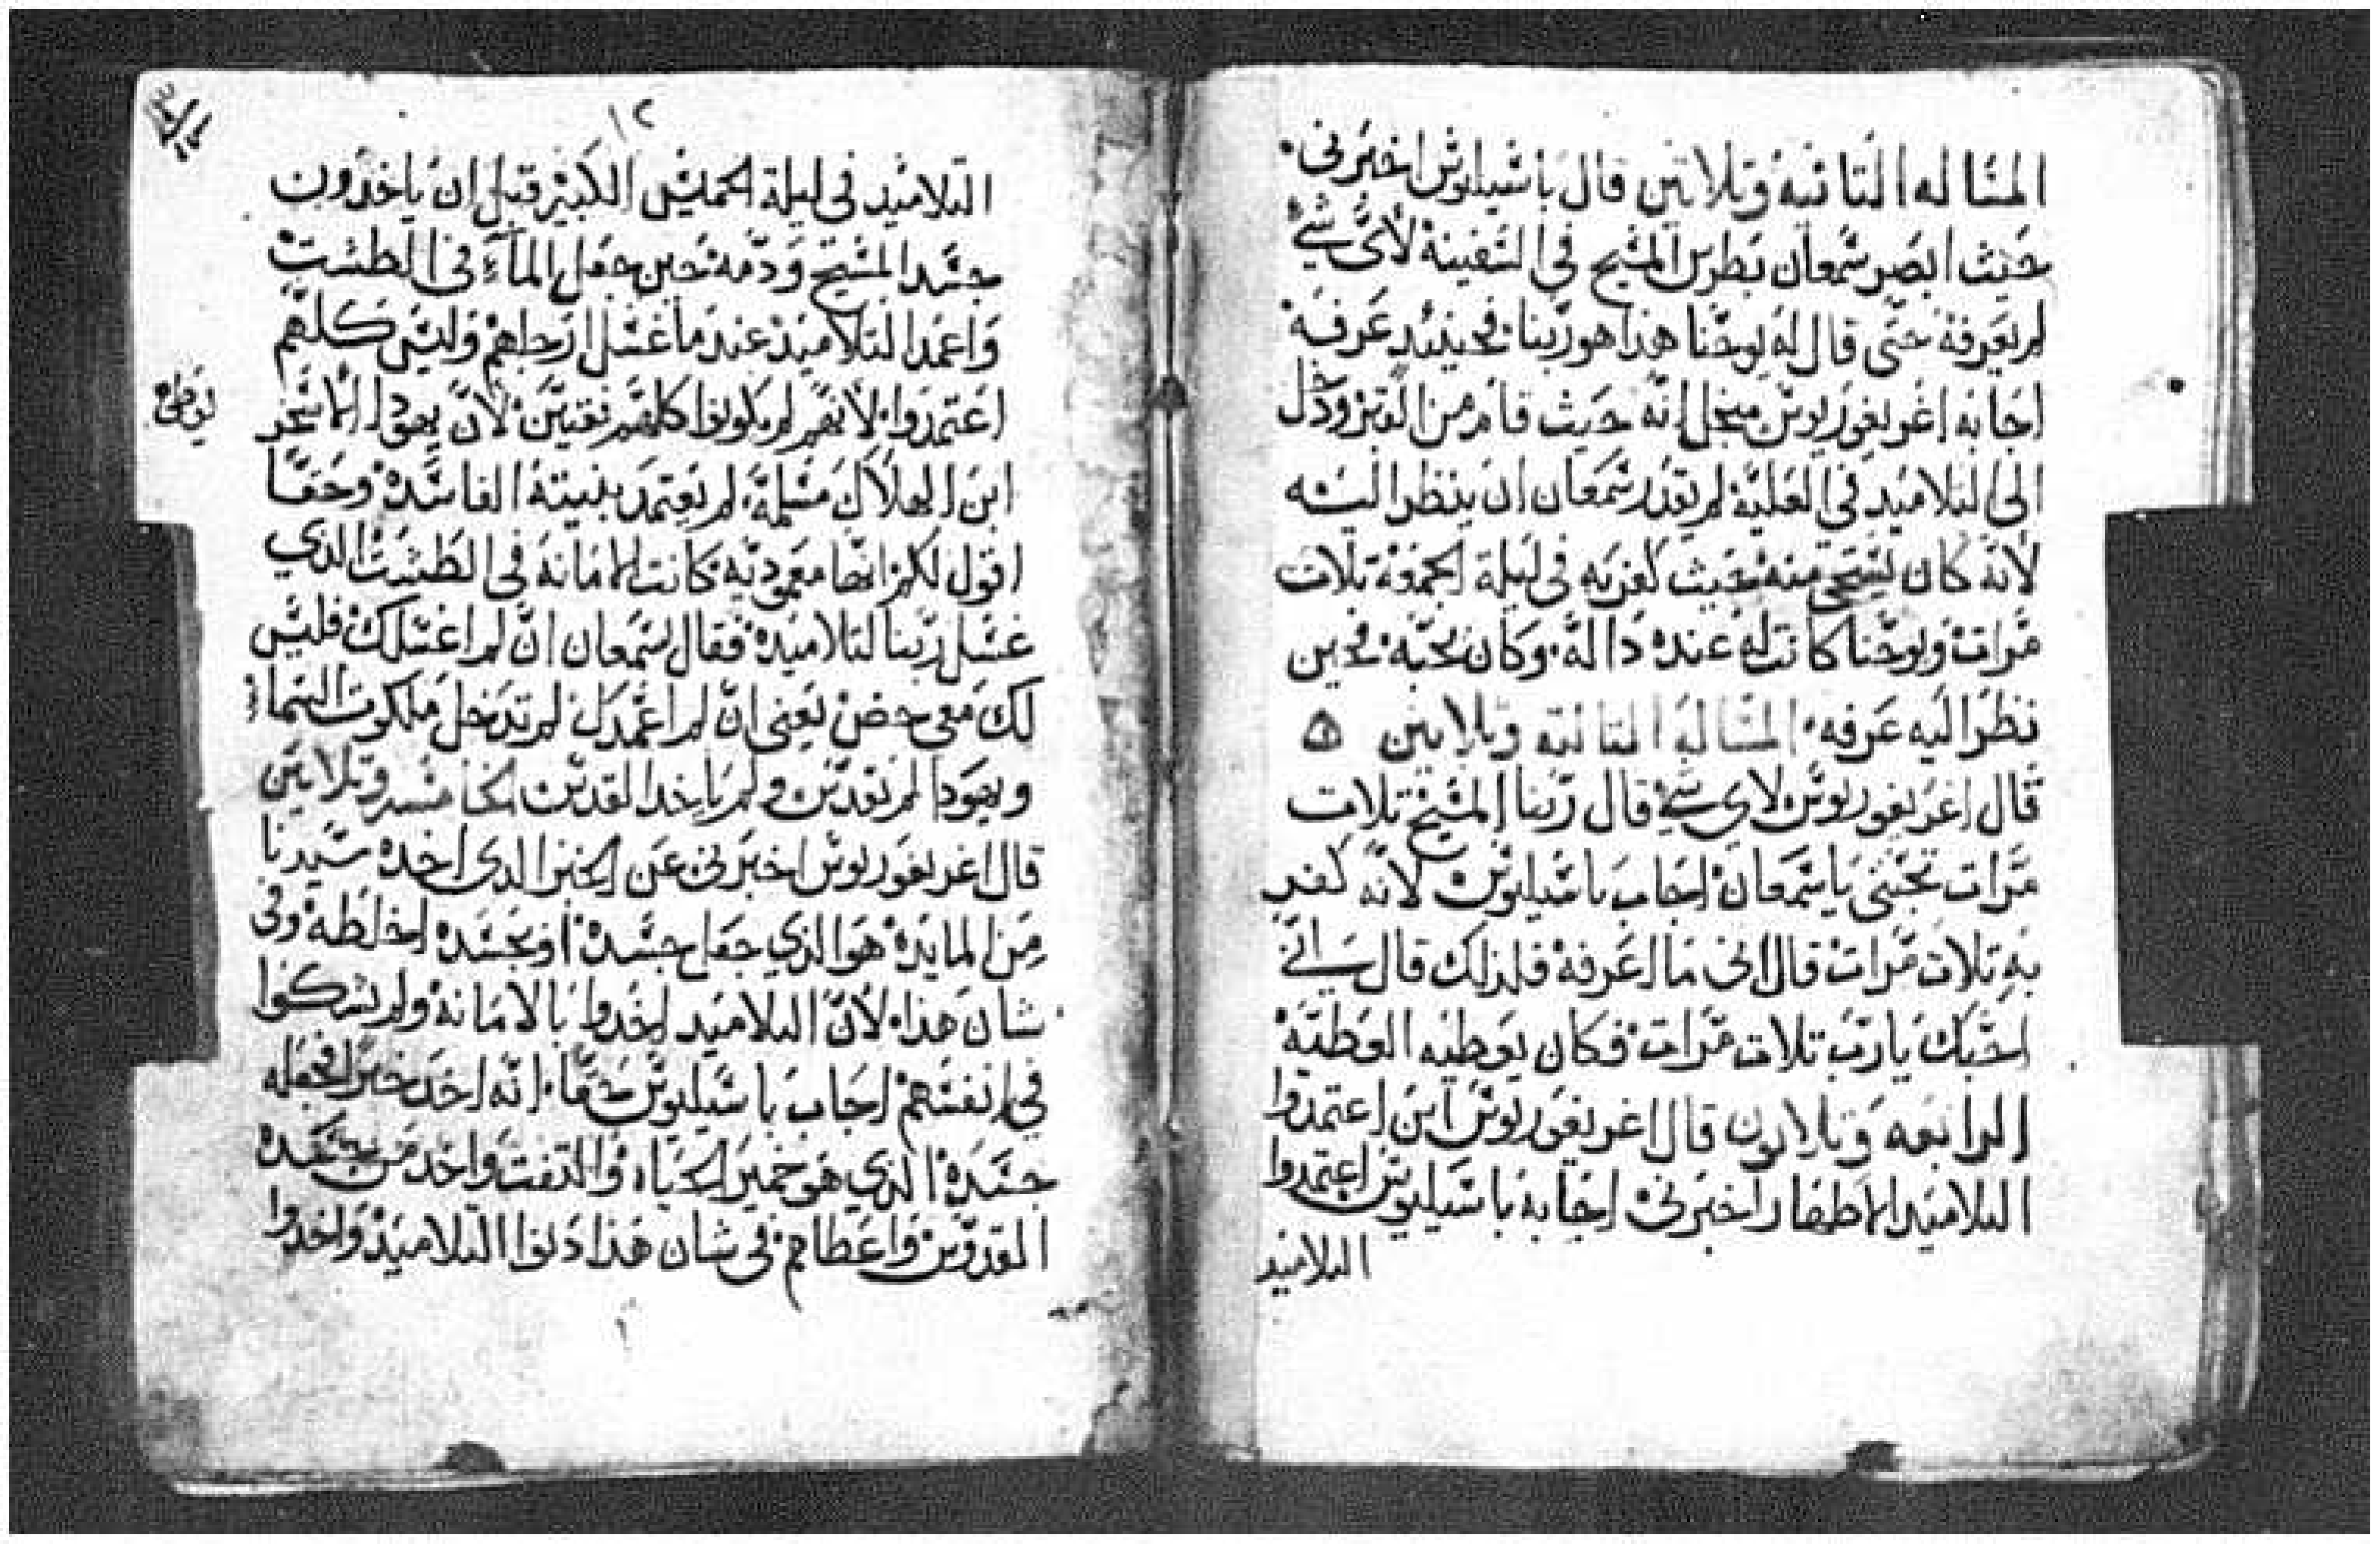 المساله التانيه وتلاتين قال باسيليوس اخبرني
حيث ابصر سمعان بطرس المسيح في السفينة لأي شي
لم يعرفة حتى قال له يوحنا هذا هو ربنا فحينيد عرفة
اجابه اغريغوريوس من اجل انه حيث قام من القبر ودخل
الى التلاميد في العلية لم يقدر سمعان ان ينظر اليه
لانه كان يستحي منه حيث كفر به في ليلة الجمعة تلات
مرات ويوحنا كانت له عنده دالة وكان يحبه فحين
نظر اليه عرفه المساله التالته وتلاتين
قال اغريغوريوس لاي شي قال ربنا المسيح تلات
مرات تحبني ياسمعان اجاب باسيليوس لانه كفر
به تلات مرات قال اني ما اعرفة فلذلك قال اني
احبك يارب تلات مرات فكان يعطيه العطية
الرابعه وتلاتون قال اغريغوريوس اين اعتمدوا
التلاميد الاطهار اخبرني اجابه باسيليوس اعتمدوا
التلاميد
١٢
التلاميد في ليلة الخميس الكبير قبل ان ياخدون
جسد المسيح ودمه حين جعل المآء في الطشت
واعمد التلاميد عند ما غسل ارجلهم وليس كلهم
اعتمدوا لانهم لم يكونوا كلهم نقيين لان يهودا
ابن الهلاك لم يعتمد بنيته الفاسدة وحقا
اقول لكم انها معمودية كانت الامانة في الطشت الدي
غسل ربنا لتلاميده فقال لسمعان ان لم اغسلك فليس
لك معي حض يعني ان لم اعمدك لم تدخل ملكوت السما
ويهودا لم تقدس ولم ياخد القدس الخامسه وتلاتين
قال اغريغوريوس اخبرني عن الخبز الدي اخده سيدنا
من المايدة هو الدي جعل جسده او بجسده اخلطه وفي
شان هذا لان التلاميد اخدوا بالامانة ولم يشكوا
في انفسهم اجاب باسيليوس حقا انه اخد خبز الجعله
جسده الدي هو خمير الحياه والتفت واخد من جسده
القدوس واعطاهم في شان هذا دنوا التلاميد واخدوا